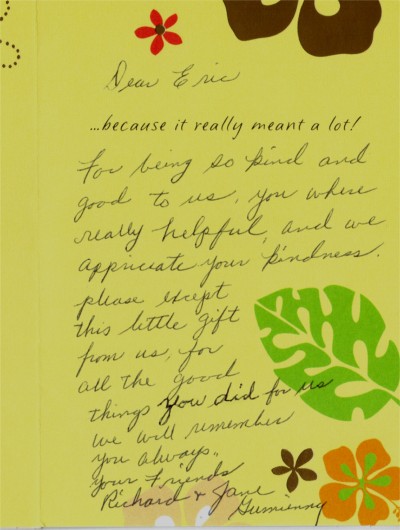 Dear Eric
...because it really meant a lot!
For being so kind and
good to us, you where
really helpful, and we
appriciate your kindness.
please except
this little gift
from us, for
all the good
things you did for us
we will remember
you always,,
your Friends
Richard & Jane
Gumienny